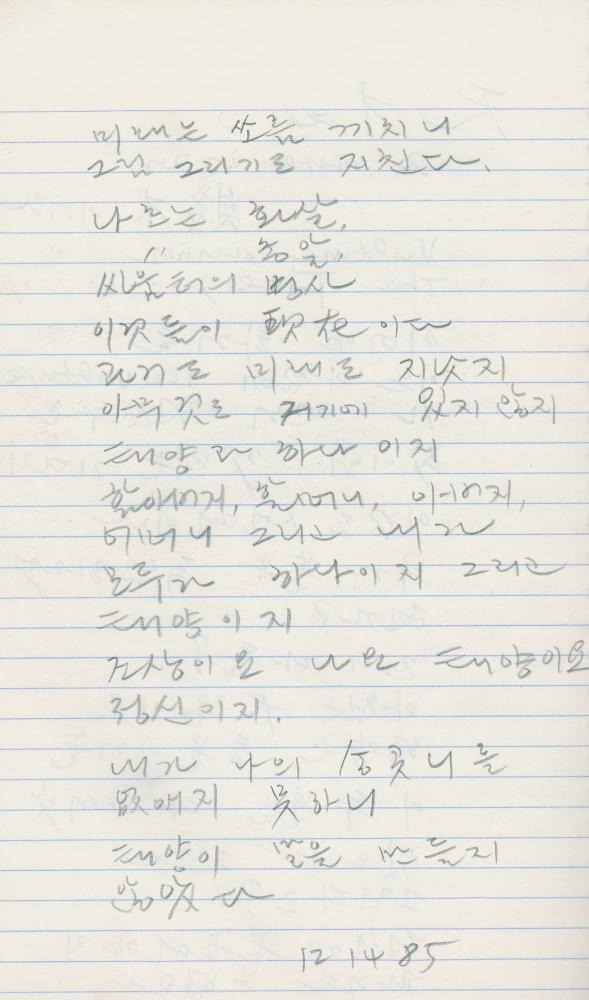 미래는 소름 끼치니
그님 그리기로 지친다.
나르는 화살,
〃 총알,
싸움터의 병사
이것들이 現在이다
과거도 미래도 지낫지
아무것도 거기에 있지 않지
태양과 하나이지
할아버지, 할머니, 아버지,
어머니 그리고 내가
모두가 하나이지 그리고
태양이지
조상이요 나요 태양이요
정신이지.
내가 나의 송곳니를
없애지 못하니
태양이 말을 만들지
않았다
12 14 85